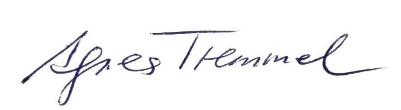 Agnes Tremmel